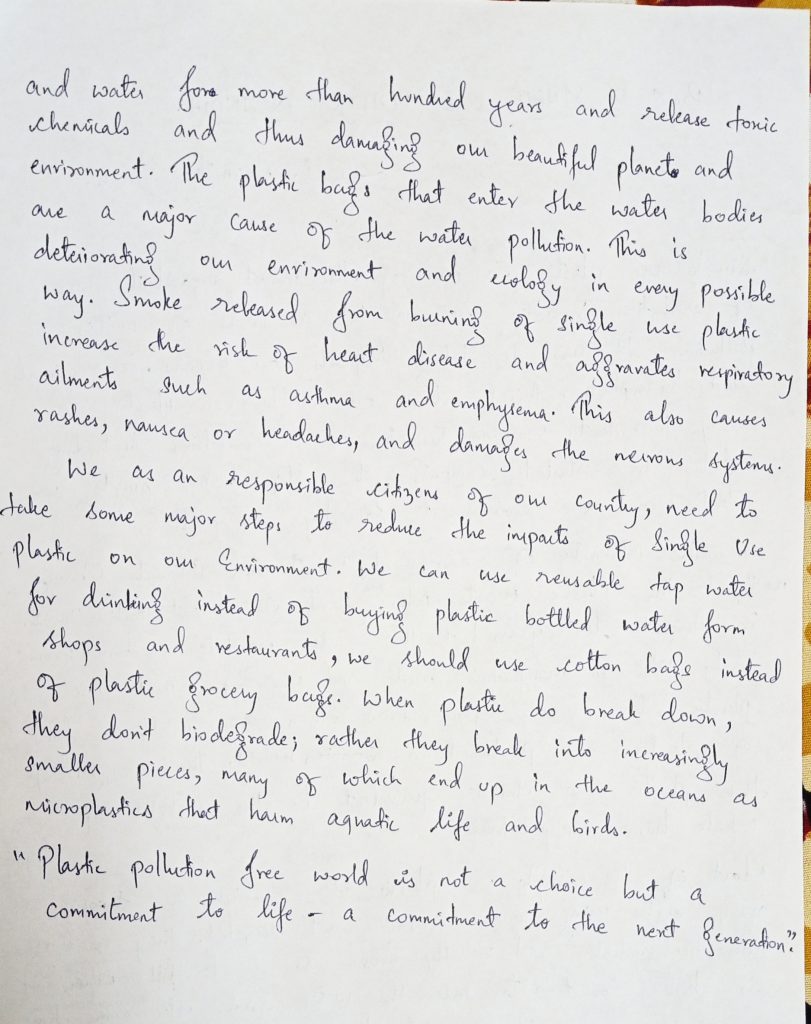 and water for more than hundred years and release toxic
chemicals and thus damaging our beautiful planet and
environment. The plastic bags that enter the water bodies
are a major cause of the water pollution. This is
deteriorating our environment and ecology in every possible
way. Smoke released from burning of single use plastic
increase the risk of heart disease and aggravates respiratory
ailments such as asthma and emphysema. This also causes
rashes, nausea or headaches, and damages the nervous systems.
We as an responsible citizens of our country, need to
take some major steps to reduce the impacts of Single Use
plastic on our Environment. We can use reusable tap water
for drinking instead of buying plastic bottled water form
shops and restaurants, we should use cotton bags instead
of plastic grocery bags. When plastic do break down,
they don't biodegrade; rather they break into increasingly
smaller pieces, many of which end up in the oceans as
microplastics that harm aquatic life and birds.
"Plastic pollution free world is not a choice but a
commitment to life - a commitment to the next generation."